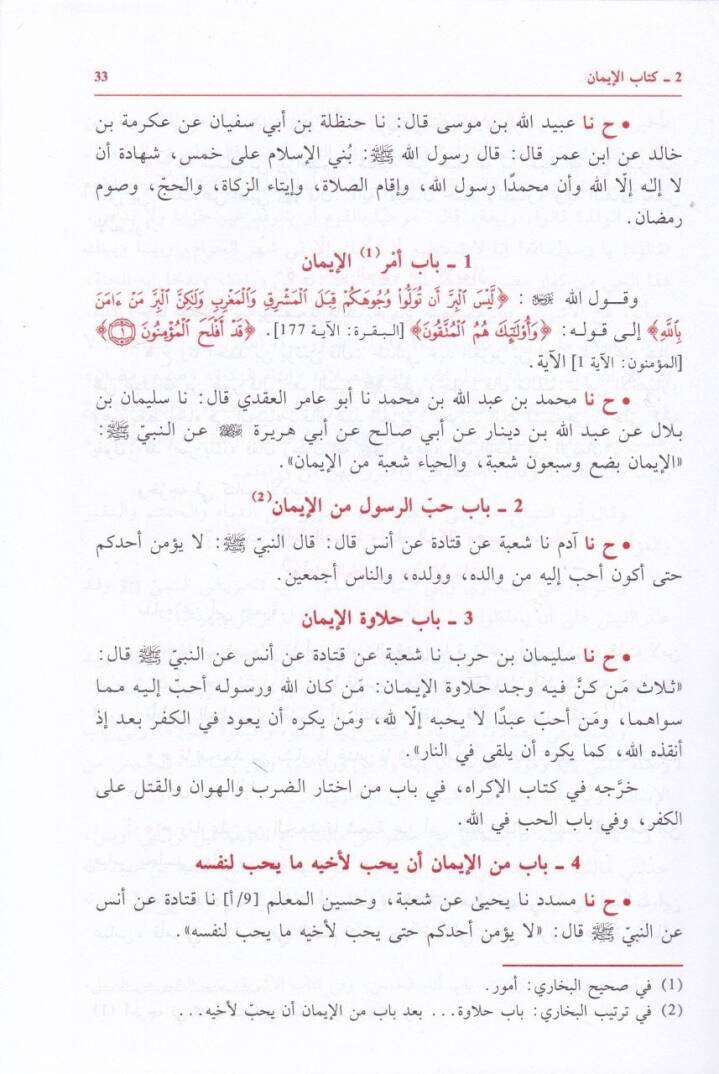 2 ـ كتاب الإيمان
33
• ح نا عبيد الله بن موسى قال: نا حنظلة بن أبي سفيان عن عكرمة بن
خالد عن ابن عمر قال: قال رسول الله ﷺ: بُني الإسلام على خمس، شهادة أن
لا إله إلّا الله وأن محمدًا رسول الله، وإقام الصلاة، وإيتاء الزكاة، والحجّ، وصوم
رمضان.
1 ـ باب أمْر(1) الإيمان
وقول الله : ﴿لَّيْسَ ٱلْبِرَّ أَن تُوَلُّوا۟ وُجُوهَكُمْ قِبَلَ ٱلْمَشْرِقِ وَٱلْمَغْرِبِ وَلَٰكِنَّ ٱلْبِرَّ مَنْ ءَامَنَ
بِٱللَّهِ﴾ إلى قوله: ﴿وَأُو۟لَٰٓئِكَ هُمُ ٱلْمُتَّقُونَ﴾ [البقرة: الآية 177]. ﴿قَدْ أَفْلَحَ ٱلْمُؤْمِنُونَ ١﴾
[المؤمنون: الآية 1] الآية.
• ح نا محمد بن عبد الله بن محمد نا أبو عامر العقدي قال: نا سليمان بن
بلال عن عبد الله بن دينار عن أبي صالح عن أبي هريرة عن النبيّ ﷺ:
«الإيمان بضع وسبعون شعبة، والحياء شعبة من الإيمان».
2 ـ باب حبّ الرسول من الإيمان(2)
• ح نا آدم نا شعبة عن قتادة عن أنس قال: قال النبيّ ﷺ: لا يؤمن أحدكم
حتى أكون أحب إليه من والده، وولده، والناس أجمعين.
3 ـ باب حلاوة الإيمان
• ح نا سليمان بن حرب نا شعبة عن قتادة عن أنس عن النبيّ ﷺ قال:
«ثلاث مَن كنَّ فيه وجد حلاوة الإيمان: مَن كان الله ورسوله أحبّ إليه مما
سواهما، ومَن أحبّ عبدًا لا يحبه إلّا لله، ومَن يكره أن يعود في الكفر بعد إذ
أنقذه الله، كما يكره أن يلقى في النار».
خرَّجه في كتاب الإكراه، في باب من اختار الضرب والهوان والقتل على
الكفر، وفي باب الحب في الله.
4 ـ باب من الإيمان أن يحب لأخيه ما يحب لنفسه
• ح نا مسدد نا يحيىٰ عن شعبة، وحسين المعلم [9/أ] نا قتادة عن أنس
عن النبيّ ﷺ قال: «لا يؤمن أحدكم حتى يحب لأخيه ما يحب لنفسه».
(1) في صحيح البخاري: أمور.
(2) في ترتيب البخاري: باب حلاوة... بعد باب من الإيمان أن يحبّ لأخيه...